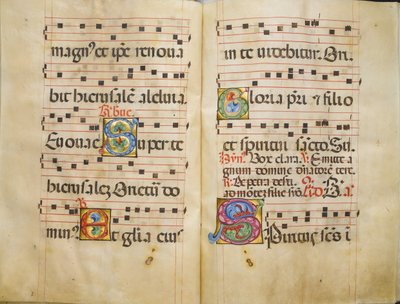 magn⁹ et ip̄e renoua
bit hierusalē alleluia
R̃. bu̅c.
Euouae Super te
hierusalez Orietur do
R̃
min⁹. Et gl̄ia eius
in te uidebitur. On.
Gloria pr̄i & filio
et spiritui sācto. Su.
Hyn̄. Vox clara. R̃. Emitte a
gnum domine dn̄atorē terre.
R̃. De petra deserti.
ad mōtez filie syō.
Spiritus scs̄ i